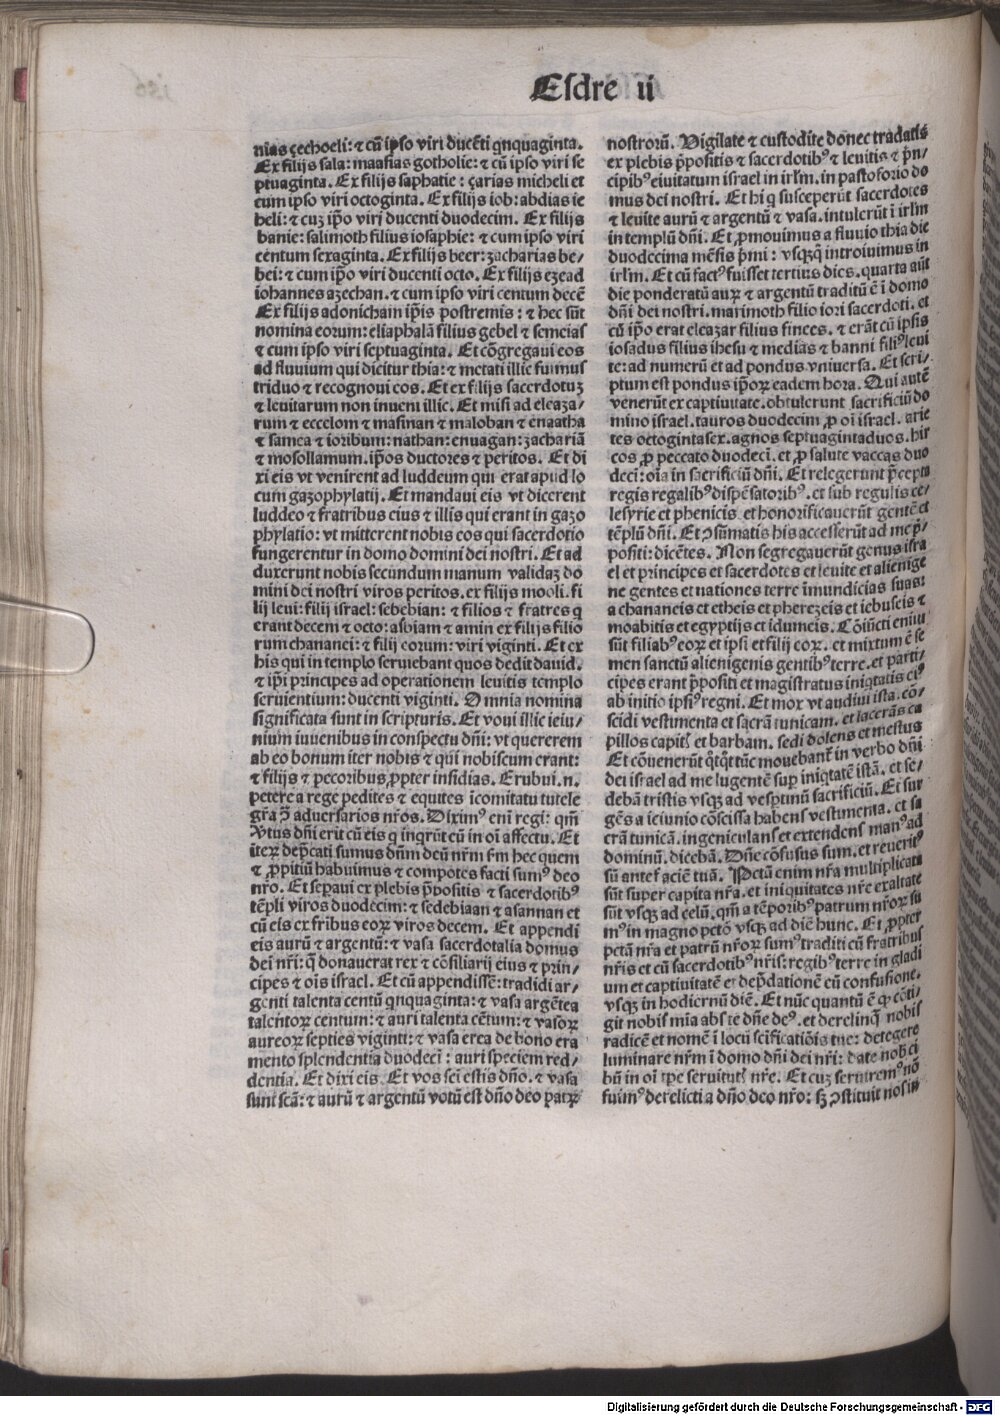 Esdre ii
nias çechoeli: ⁊ cũ ipso viri ducẽti qnquaginta.
Ex filijs sala: maasias gotholie: ⁊ cũ ipso viri se
ptuaginta. Ex filijs saphatie: çarias micheli et
cum ipso viri octoginta. Ex filijs iob: abdias ie
heli: ⁊ cuz ip̃o viri ducenti duodecim. Ex filijs
banie: salimoth filius iosaphie: ⁊ cum ipso viri
centum sexaginta. Ex filijs beer: zacharias be/
bei: ⁊ cum ip̃o viri ducenti octo. Ex filijs ezead
iohannes azechan. ⁊ cum ipso viri centum decẽ
Ex filijs adonicham ip̃is postremis: ⁊ hec sũt
nomina eorum: eliaphalã filius gebel ⁊ semeias
⁊ cum ipso viri septuaginta. Et cõgregaui eos
ad fluuium qui dicitur thia: ⁊ metati illic fuimus
triduo ⁊ recognoui eos. Et ex filijs sacerdotuz
⁊ leuitarum non inueni illic. Et misi ad eleaza/
rum ⁊ eccelom ⁊ masinan ⁊ maloban ⁊ enaatha
⁊ samea ⁊ ioribum: nathan: enuagan: zachariã
⁊ mosollamum. ip̃os ductores ⁊ peritos. Et di
xi eis vt venirent ad luddeum qui erat apud lo
cum gazophylatij. Et mandaui eis vt dicerent
luddeo ⁊ fratribus eius ⁊ illis qui erant in gazo
phylatio: vt mitterent nobis eos qui sacerdotio
fungerentur in domo domini dei nostri. Et ad
duxerunt nobis secundum manum validaz do
mini dei nostri viros peritos. ex filijs mooli. fi
lij leui: filij israel: sebebian: ⁊ filios ⁊ fratres q̃
erant decem ⁊ octo: asbiam ⁊ amin ex filijs filio
rum chananei: ⁊ filij eorum: viri viginti. Et ex
his qui in templo seruiebant quos dedit dauid.
⁊ ip̃i principes ad operationem leuitis templo
seruientium: ducenti viginti. Omnia nomina
significata sunt in scripturis. Et voui illic ieiu/
nium iuuenibus in conspectu dñi: vt quererem
ab eo bonum iter nobis ⁊ qui nobiscum erant:
⁊ filijs ⁊ pecoribus ꝓpter insidias. Erubui .n.
petere a rege pedites ⁊ equites ĩ comitatu tutele
gr̃a ↄ̃ aduersarios nr̃os. Diximꝰ eni regi: qm̃
Ꝟtus dñi erit cũ eis q inqrũt cũ in oĩ affectu. Et
iteꝝ dep̃cati sumus dñm deũ nr̃m fm hec quem
⁊ ꝓpitiũ habuimus ⁊ compotes facti sumꝰ deo
nr̃o. Et sepaui ex plebis p̃positis ⁊ sacerdotibꝰ
tẽpli viros duodecim: ⁊ sedebiaan ⁊ asannan et
cũ eis ex fribus eoꝝ viros decem. Et appendi
eis aurũ ⁊ argentũ: ⁊ vasa sacerdotalia domus
dei nr̃i: q̃ donauerat rex ⁊ cõsiliarij eius ⁊ prin/
cipes ⁊ oĩs israel. Et cũ appendissẽ: tradidi ar/
genti talenta centũ qnquaginta: ⁊ vasa argẽtea
talentoꝝ centum: ⁊ auri talenta cẽtum: ⁊ vasoꝝ
aureoꝝ septies viginti: ⁊ vasa erea de bono era
mento splendentia duodecĩ: auri speciem red/
dentia. Et dixi eis. Et vos sci estis dño. ⁊ vasa
sunt scã: ⁊ aurũ ⁊ argentũ votũ est dño deo patꝝ
nostrorũ. Vigilate ⁊ custodite donec tradatis
ex plebis p̃positis ⁊ sacerdotibꝰ ⁊ leuitis ⁊ p̃n/
cipibꝰ ciuitatum israel in irl̃m. in pastoforio do
mus dei nostri. Et hi q̃ susceperũt sacerdotes
⁊ leuite aurũ ⁊ argentũ ⁊ vasa. intulerũt ĩ irl̃m
in templũ dñi. Et ꝓmouimus a fluuio thia die
duodecima mẽsis p̃mi: vsqꝫqꝫ introiuimus in
irl̃m. Et cũ factꝰ fuisset tertius dies. quarta aũt
die ponderatũ auꝝ ⁊ argentũ traditũ ẽ ĩ domo
dñi dei nostri. marimoth filio iori sacerdoti. et
cũ ip̃o erat eleazar filius finees. ⁊ erãt cũ ipsis
iosadus filius ihesu ⁊ medias ⁊ banni filiꝰ leui
te: ad numerũ et ad pondus vniuersa. Et scri/
ptum est pondus ip̃oꝝ eadem hora. Qui autẽ
venerũt ex captiuitate. obtulerunt sacrificiũ do
mino israel. tauros duodecim ꝓ oĩ israel. arie
tes octogintasex. agnos septuagintaduos. hir
cos ꝓ peccato duodecĩ. et ꝓ salute vaccas duo
decĩ: oĩa in sacrificiũ dñi. Et relegerunt p̃cepta
regis regalibꝰ dispẽsatoribꝰ. et sub regulis ce/
lesyrie et phenicis et honorificauerũt gentẽ et
tẽplũ dñi. Et ↄsũmatis his accesserũt ad me p̃/
positi: dicẽtes. Non segregauerũt genus isra
el et principes et sacerdotes et leuite et alienige
ne gentes et nationes terre ĩmundicias suas:
a chananeis et etheis et pherezeis et iebuseis ⁊
moabitis et egyptijs et idumeis. Cõiũcti eniʒ
sũt filiabꝰ eoꝝ et ipsi et filij eoꝝ. et mixtum ẽ se
men sanctũ alienigenis gentibꝰ terre. et parti/
cipes erant p̃positi et magistratus iniqtatis eiꝰ
ab initio ipsiꝰ regni. Et mox vt audiui ista. cõ/
scidi vestimenta et sacrã tunicam. et lacerãs ca
pillos capitꝭ et barbam. sedi dolens et mestus
Et cõuenerũt qtqt tũc mouebantꝛ in verbo dñi
dei israel ad me lugentẽ sup̃ iniqtatẽ istã. et se/
debã tristis vsqꝫ ad vesp̃tinũ sacrificiũ. Et sur
gẽs a ieiunio cõscissa habens vestimenta. et sa
crã tunicã. ingeniculans et extendens manꝰ ad
dominũ. dicebã. Dñe cõfusus sum. et reueritꝰ
sũ ante faciẽ tuã. Pctũ enim nr̃a multiplicata
sũt super capita nr̃a. et iniquitates nr̃e exaltate
sũt vsqꝫ ad celũ. qm̃ a tẽporibꝰ patrum nr̃oꝝ su
mꝰ in magno pctõ vsqꝫ ad diẽ hunc. Et ꝓpter
pctã nr̃a et patrũ nr̃oꝝ sumꝰ traditi cũ fratribus
nr̃is et cũ sacerdotibꝰ nr̃is: regibꝰ terre in gladi
um et captiuitatẽ et dep̃dationẽ cũ confusione.
vsqꝫ in hodiernũ diẽ. Et nũc quantũ ẽ ꝙ cõti/
git nobis mĩa abs te dñe deꝰ. et derelinq̃ nobis
radicẽ et nomẽ ĩ locũ scificatiõis tue: detegere
luminare nr̃m ĩ domo dñi dei nr̃i: date nobꝭ ci
bũ in oĩ tpe seruitutꝭ nr̃e. Et cuz seruiremꝰ nõ
fuimꝰ derelicti a dño deo nr̃o: sꝫ ↄstituit nos in
Digitalisierung gefördert durch die Deutsche Forschungsgemeinschaft - DFG